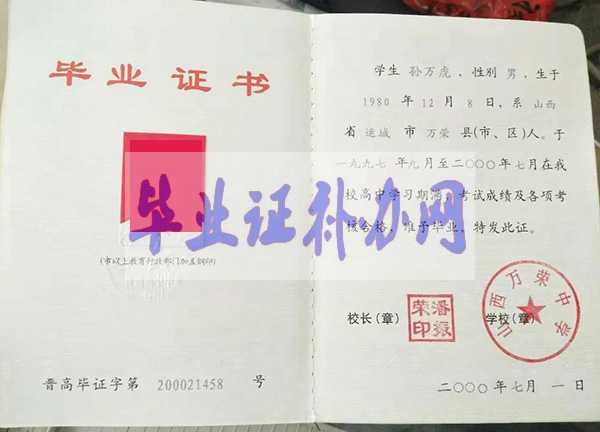 毕业证书
(市以上教育行政部门加盖钢印)
晋高毕证字第 200021458 号
学生 孙万虎，性别 男，生于
1980 年 12 月 8 日，系 山西
省 运城 市 万荣 县(市、区)人。于
一九九七年九月至二〇〇〇年七月在我
校高中学习期满，考试成绩及各项考
核合格，准予毕业，特发此证。
校长(章)
潘振荣印
学校(章)
山西万荣中学
二〇〇〇年七月一日
毕业证补办网